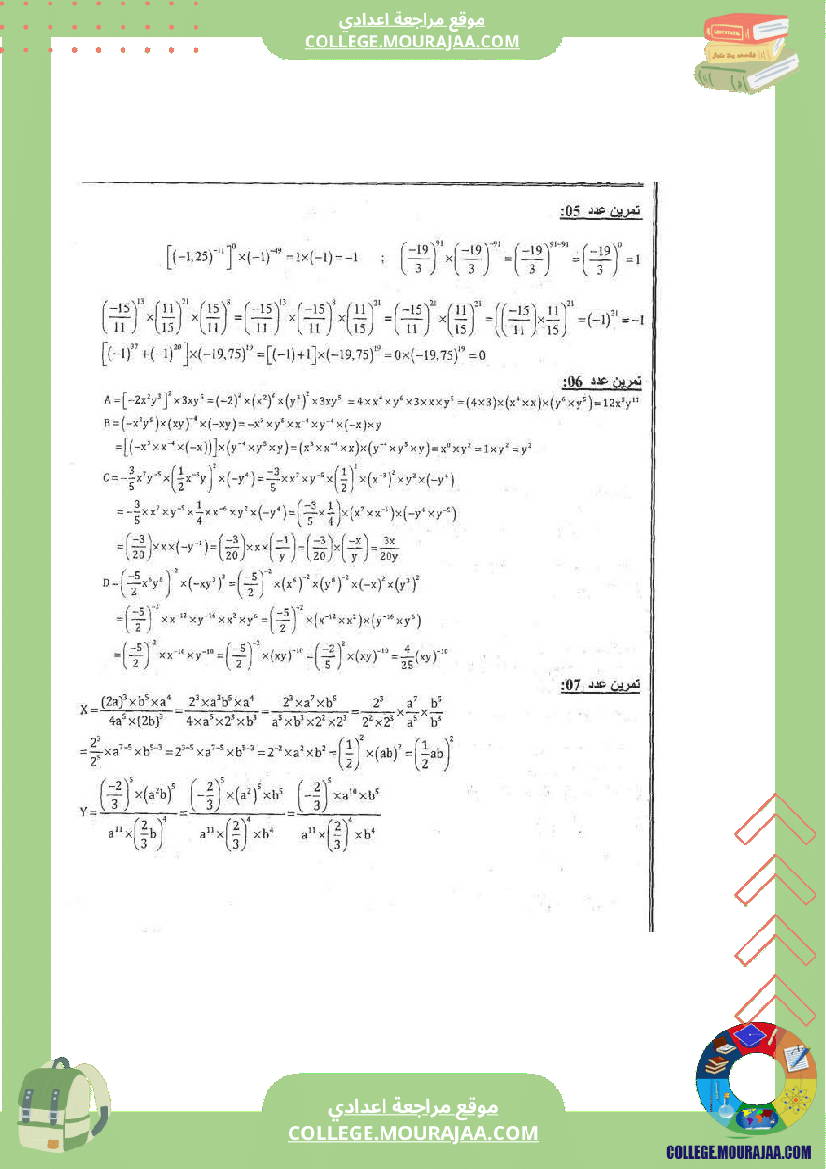 موقع مراجعة اعدادي
COLLEGE.MOURAJAA.COM
تمرين عدد 05:
[(−1,25)⁻¹¹]⁰×(−1)⁻⁴⁹=1×(−1)=−1 ; (−19/3)⁹¹×(−19/3)⁻⁹¹=(−19/3)⁹¹⁻⁹¹=(−19/3)⁰=1
(−15/11)¹³×(11/15)²¹×(15/11)⁸=(−15/11)¹³×(−15/11)⁸×(11/15)²¹=(−15/11)²¹×(11/15)²¹=((−15/11)×11/15)²¹=(−1)²¹=−1
[(−1)³⁷+(−1)²⁰]×(−19,75)¹⁹=[(−1)+1]×(−19,75)¹⁹=0×(−19,75)¹⁹=0
تمرين عدد 06:
A=[−2x²y³]²×3xy⁵=(−2)²×(x²)²×(y³)²×3xy⁵=4×x⁴×y⁶×3×x×y⁵=(4×3)×(x⁴×x)×(y⁶×y⁵)=12x⁵y¹¹
B=(−x³y⁵)×(xy)⁻⁴×(−xy)=−x³×y⁵×x⁻⁴×y⁻⁴×(−x)×y
=[(−x³×x⁻⁴×(−x))]×(y⁻⁴×y⁵×y)=(x³×x⁻⁴×x)×(y⁻⁴×y⁵×y)=x⁰×y²=1×y²=y²
C=−3/5x⁷y⁻⁵×(1/2x⁻³y)²×(−y⁴)=−3/5×x⁷×y⁻⁵×(1/2)²×(x⁻³)²×y²×(−y⁴)
=−3/5×x⁷×y⁻⁵×1/4×x⁻⁶×y²×(−y⁴)=(−3/5×1/4)×(x⁷×x⁻¹)×(−y⁴×y⁻⁵)
=(−3/20)×x×(−y⁻¹)=(−3/20)×x×(−1/y)=(−3/20)×(−x/y)=3x/20y
D=(−5/2x⁶y⁸)⁻²×(−xy³)²=(−5/2)⁻²×(x⁶)⁻²×(y⁸)⁻²×(−x)²×(y³)²
=(−5/2)⁻²×x⁻¹²×y⁻¹⁶×x²×y⁶=(−5/2)⁻²×(x⁻¹²×x²)×(y⁻¹⁶×y⁶)
=(−5/2)⁻²×x⁻¹⁰×y⁻¹⁰=(−5/2)⁻²×(xy)⁻¹⁰=(−2/5)²×(xy)⁻¹⁰=4/25(xy)⁻¹⁰
تمرين عدد 07:
X=(2a)³×b⁵×a⁴/4a⁵×(2b)³=2³×a³b⁵×a⁴/4×a⁵×2³×b³=2³×a⁷×b⁵/a⁵×b³×2²×2³=2³/2²×2³×a⁷/a⁵×b⁵/b³
=2³/2⁵×a⁷⁻⁵×b⁵⁻³=2³⁻⁵×a⁷⁻⁵×b⁵⁻³=2⁻²×a²×b²=(1/2)²×(ab)²=(1/2ab)²
Y=(−2/3)⁵×(a²b)⁵/a¹¹×(2/3b)⁴=(−2/3)⁵×(a²)⁵×b⁵/a¹¹×(2/3)⁴×b⁴=(−2/3)⁵×a¹⁰×b⁵/a¹¹×(2/3)⁴×b⁴
موقع مراجعة اعدادي
COLLEGE.MOURAJAA.COM
COLLEGE.MOURAJAA.COM